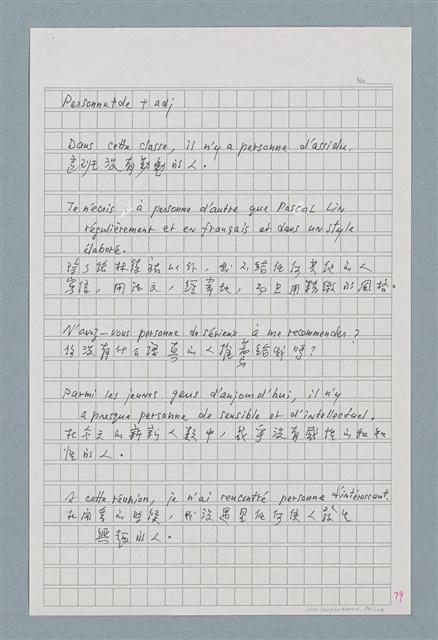 No.
Personne + de + adj
Dans cette classe, il n'y a personne d'assidu.
這班沒有勤勉的人。
Je n'écris à personne d'autre que Pascal Lin
régulièrement et en français et dans un style
élaboré.
除了給林 以外，我不給任何其他的人
寫信，用法文，經常地，而且用精緻的風格。
N'avez-vous personne de sérieux à me recommender?
你沒有什么認真的人推薦給我嗎？
Parmi les jeunes gens d'aujourd'hui, il n'y
a presque personne de sensible et d'intellectuel.
在今天的新新人類中，幾乎沒有感性的和知
性的人。
A cette réunion, je n'ai rencontré personne d'intéressant.
在開會的時候，我沒遇見任何使人發生
興趣的人。
79